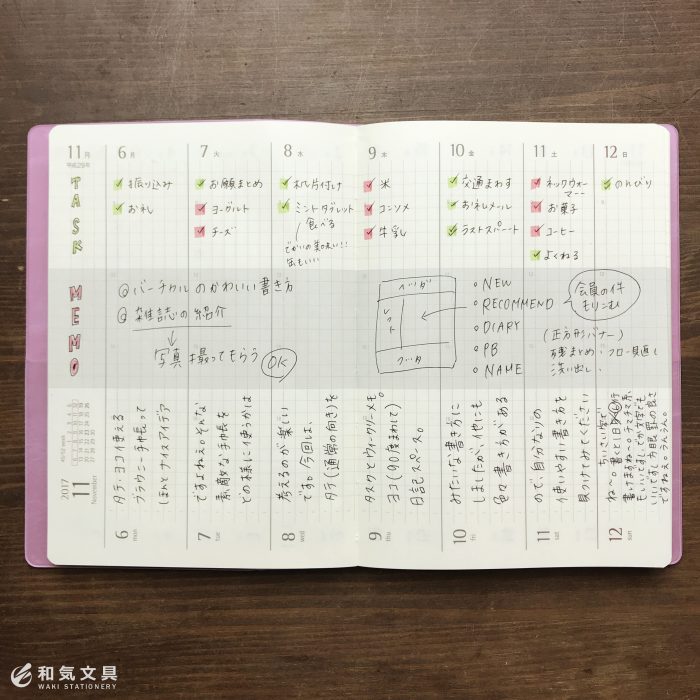 11月
平成29年
6月
7火
8水
9木
10金
11土
12日
TASK
振り込み
お礼
お願まとめ
ヨーグルト
チーズ
机片付け
ミントタブレット
食べる
でかいの美味い!!
米
コンソメ
牛乳
交通まわす
お礼メール
ラストスパート
ネックウォーマー
お菓子
コーヒー
よくねる
のんびり
MEMO
バーチカルのかわいい書き方
雑誌の紹介
写真撮ってもらう OK
ヘッダ
レフト
フッタ
NEW
RECOMMEND
DIARY
PB
NAME
会員の件
もりこむ
(正方形バナー)
まとめ・フロー見直し
洗い出し
45-52 week
2017
11
November
6 mon
タテ・ヨコ使える
ブラウニー手帳って
ほんとナイスアイデア
7 tue
ですよねえ。そんな
素敵な手帳を
どの様に使うかは
8 wed
考えるのが楽しい
です。今回は、
タテ(通常の向き)を
9 thu
タスクとウィークリーメモ。
ヨコ(90度まわして)
日記スペース。
10 fri
みたいな書き方に
しましたが、他にも
色々書き方がある
11 sat
ので、自分なりの
使いやすい書き方を
見つけてみてください
12 sun
ね〜。
ちいさい字で
書くと1日
行
書けますね
ですねえ。うんうん。
和気文具
WAKI STATIONERY